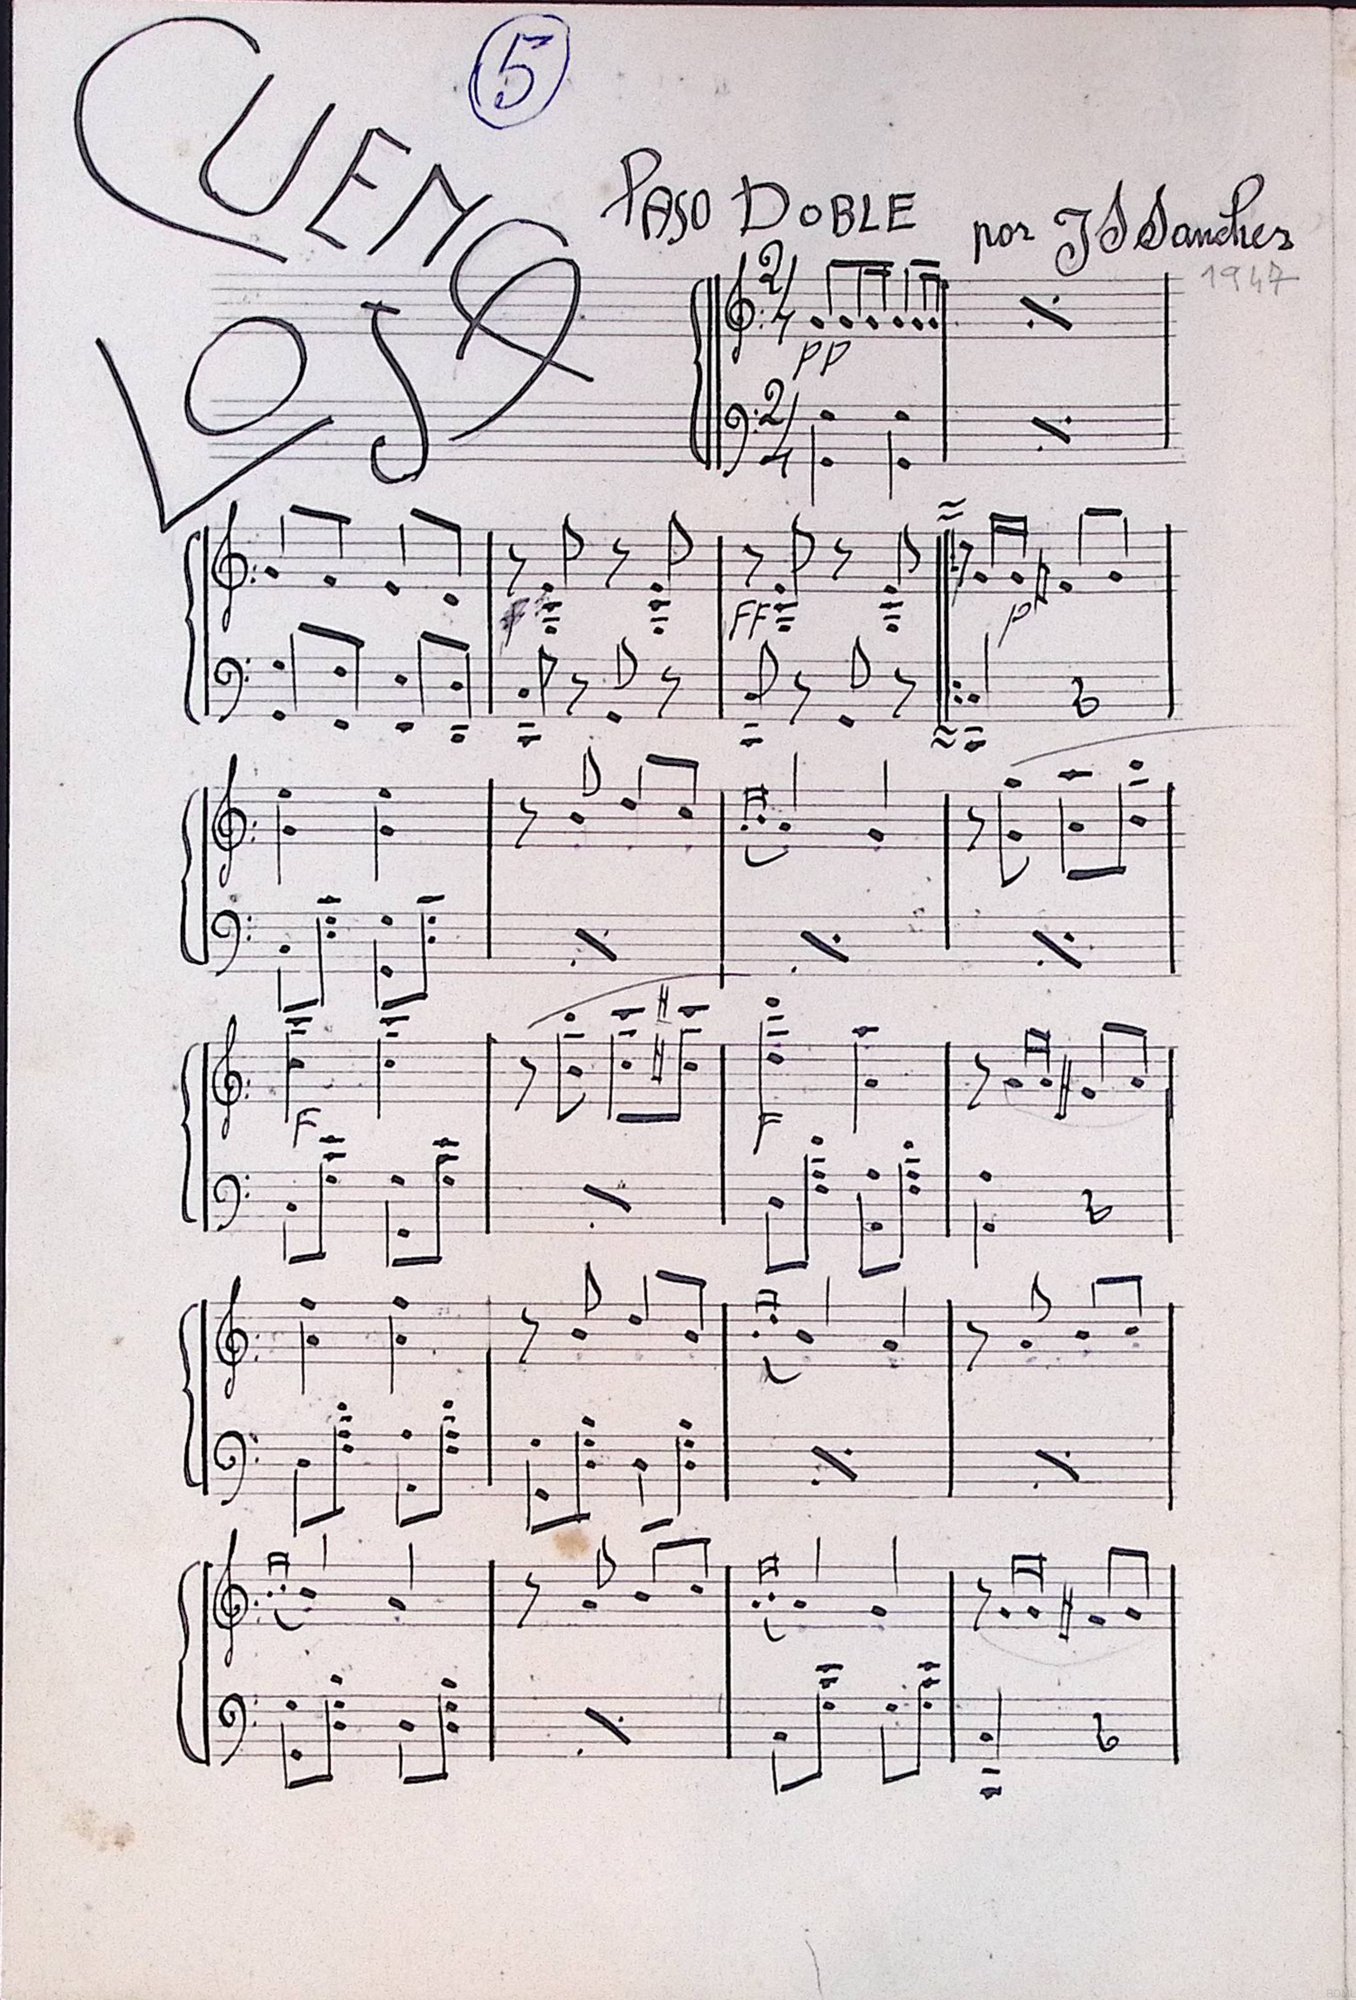 5
CUENCA
LOJA
PASO DOBLE por J S Sanchez
1947
2/4
pp
2/4
F FF p
F F